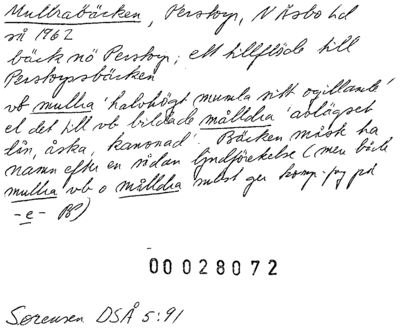 Mullrabäcken, Perstorp, N Åsbo hd
så 1962
bäck nö Perstorp; ett tillflöde till
Perstorpsbäcken
vb mullra 'halvhögt mumla sitt ogillande'
el det till vb bildade målldra 'avlägset
ljn, åska, kanonad'. Bäcken måste ha
namn efter en sådan ljudföreteelse (men både
mullra vb o målldra subst ger komp.-fog på
-e- BP)
00028072
Sørensen DSÅ 5:91